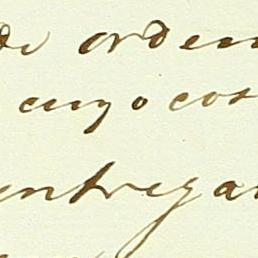 de orden
cuyo cos
entrega